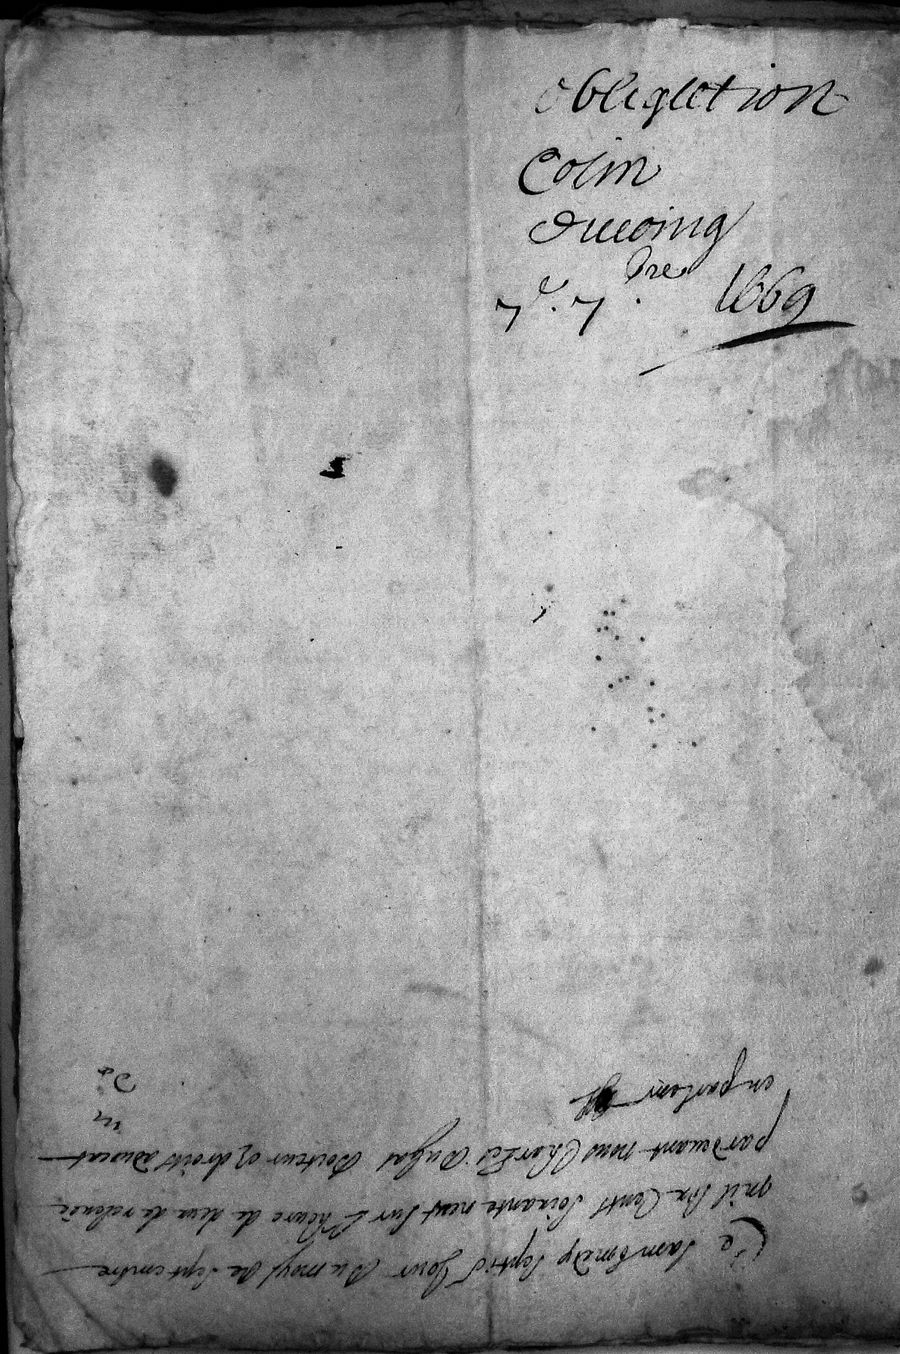 obligation
Colin
ducoing
7e. 7bre 1669
Ce samedy septie Jour du moys de septembre
mil six Cents soixante neuf sur l'heure de deux de relevée
pardevant nous Charles dugas docteur ez droits advocat
en parlem